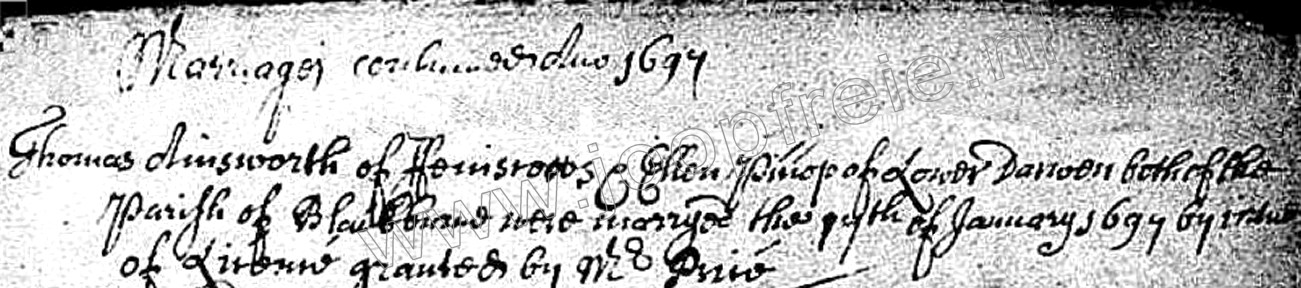 Marriages continued Ano 1697
Thomas Ainsworth of ffeniscotts & Ellen Piliop of Lower Darwen both of the
Parish of Blackburne were marryed the of January 1697 by virtue
of Licence granted by Mr Price
www.icopfreie.n